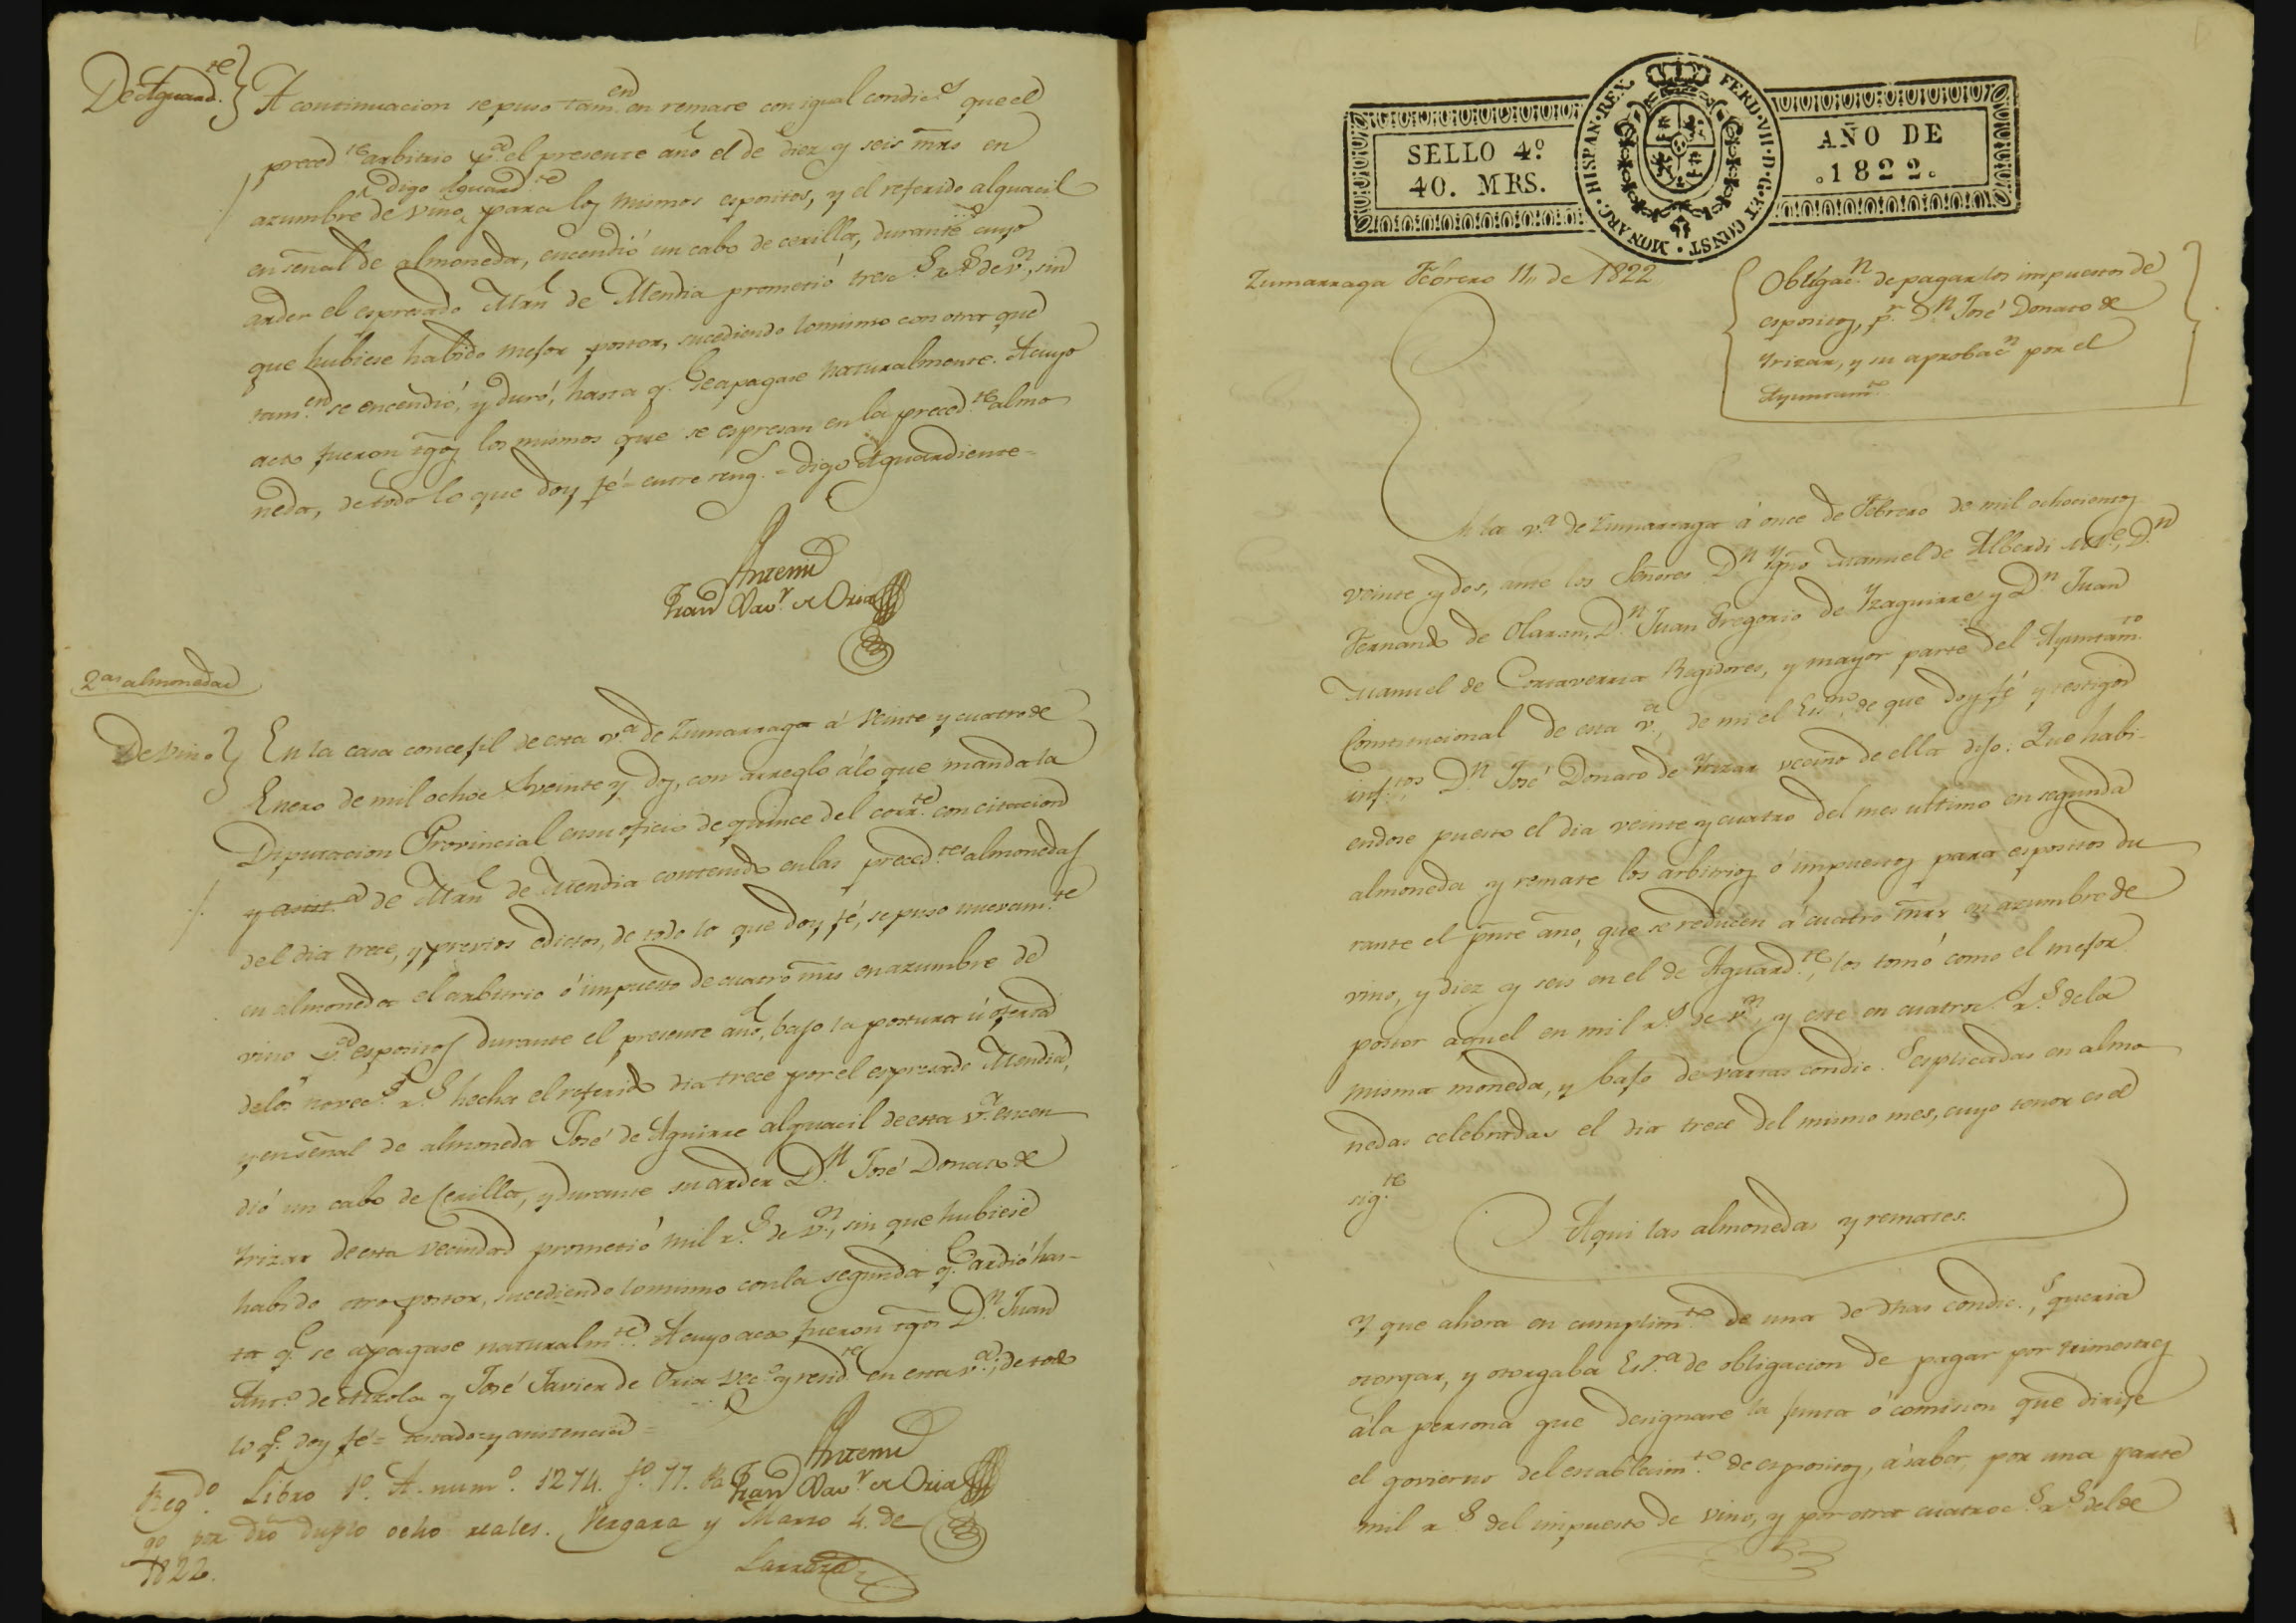 De Aguard.te
A continuacion se puso tam.en en remate con igual condic.s que el
preced.te arbitrio p.a el presente año el de diez y seis mrs en
digo Aguard.te
azumbre de vino, para los mismos espositos, y el referido alguacil
en señal de almoneda, encendió un cabo de cerilla, durante cuyo
arder el espresado Man.l de Mendia prometió trec.s r.s de v.n, sin
que hubiese habido mejor postor, sucediendo lo mismo con otra que
tam.en se encendió, y duró, hasta q.e se apagase naturalmente. A cuyo
acto fueron tgos los mismos que se espresan en la preced.te almo
neda, de todo lo que doy fé = entre reng.s = digo Aguardiente =
Ante mi
Fran.co Xav.r de Oria
2.as almonedas
De vino
En la casa concejil de esta v.a de Zumarraga á veinte y cuatro de
Enero de mil ochoc.s veinte y dos, con arreglo á lo que manda la
Diputacion Provincial en su oficio de quince del corr.te con citacion
y asist.a de Man.l de Mendia contenido en las preced.tes almonedas
del dia trece, y previos edictos, de todo lo que doy fé, se puso nuevam.te
en almoneda el arbitrio ó impuesto de cuatro mrs en azumbre de
vino p.a espositos durante el presente año, bajo la postura ú oferta
de los novec.s r.s hecha el referido dia trece por el espresado Mendia,
y en señal de almoneda José de Aguirre alguacil de esta v.a encen
dió un cabo de cerilla, y durante su arder D.n José Donato de
Yrizar de esta vecindad prometió mil r.s de v.n, sin que hubiese
habido otro postor, sucediendo lo mismo con la segunda q.e ardió has-
ta q.e se apagase naturalm.te. A cuyo acto fueron tgos D.n Juan
Ant.o de Alzola y José Javier de Oria vec.s y resid.te en esta v.a; de todo
lo q.e doy fé = testado = y asistencia =
Ante mi
Fran.co Xav.r de Oria
Reg.do Libro 1.o A. num.o 1274. f.o 77. Pa
go por dro duplo ocho reales. Vergara y Marzo 4. de
1822.
Larraza
SELLO 4.º
40. MRS.
HISPAN. REX. FERD. VII. D. G. ET CONST. MONARC.
AÑO DE
1822.
Zumarraga Febrero 11,, de 1822
Obligac.n de pagar los impuestos de
espositos, p.r D.n José Donato de
Yrizar, y su aprobac.n por el
Ayuntam.to
En la v.a de Zumarraga á once de Febrero de mil ochocientos
veinte y dos, ante los Señores D.n Ygn.o Manuel de Alberdi Alc.e, D.n
Fernando de Olaran, D.n Juan Gregorio de Yzaguirre, y D.n Juan
Manuel de Cortaverria Regidores, y mayor parte del Ayuntam.to
Constitucional de esta v.a, de mi el Es.no, de que doy fé y testigos
infr.tos D.n José Donato de Yrizar vecino de ella dijo: Que habi-
endose puesto el dia veinte y cuatro del mes ultimo en segunda
almoneda y remate los arbitrios ó impuestos para espositos du
rante el pnte año, que se reducen á cuatro mrs en azumbre de
vino, y diez y seis en el de Aguard.te, los tomó como el mejor
postor aquel en mil r.s de v.n, y este en cuatroc.s r.s de la
misma moneda, y bajo de varias condic.s esplicadas en almo
nedas celebradas el dia trece del mismo mes, cuyo tenor es el
sig.te
Aqui las almonedas y remates.
Y que ahora en cumplim.to de una de dhas condic.s, queria
otorgar, y otorgaba Es.ra de obligacion de pagar por trimestres
á la persona que designare la junta ó comision que dirije
el govierno del establecim.to de espositos, á saber, por una parte
mil r.s del impuesto de vino, y por otra cuatroc.s r.s del de